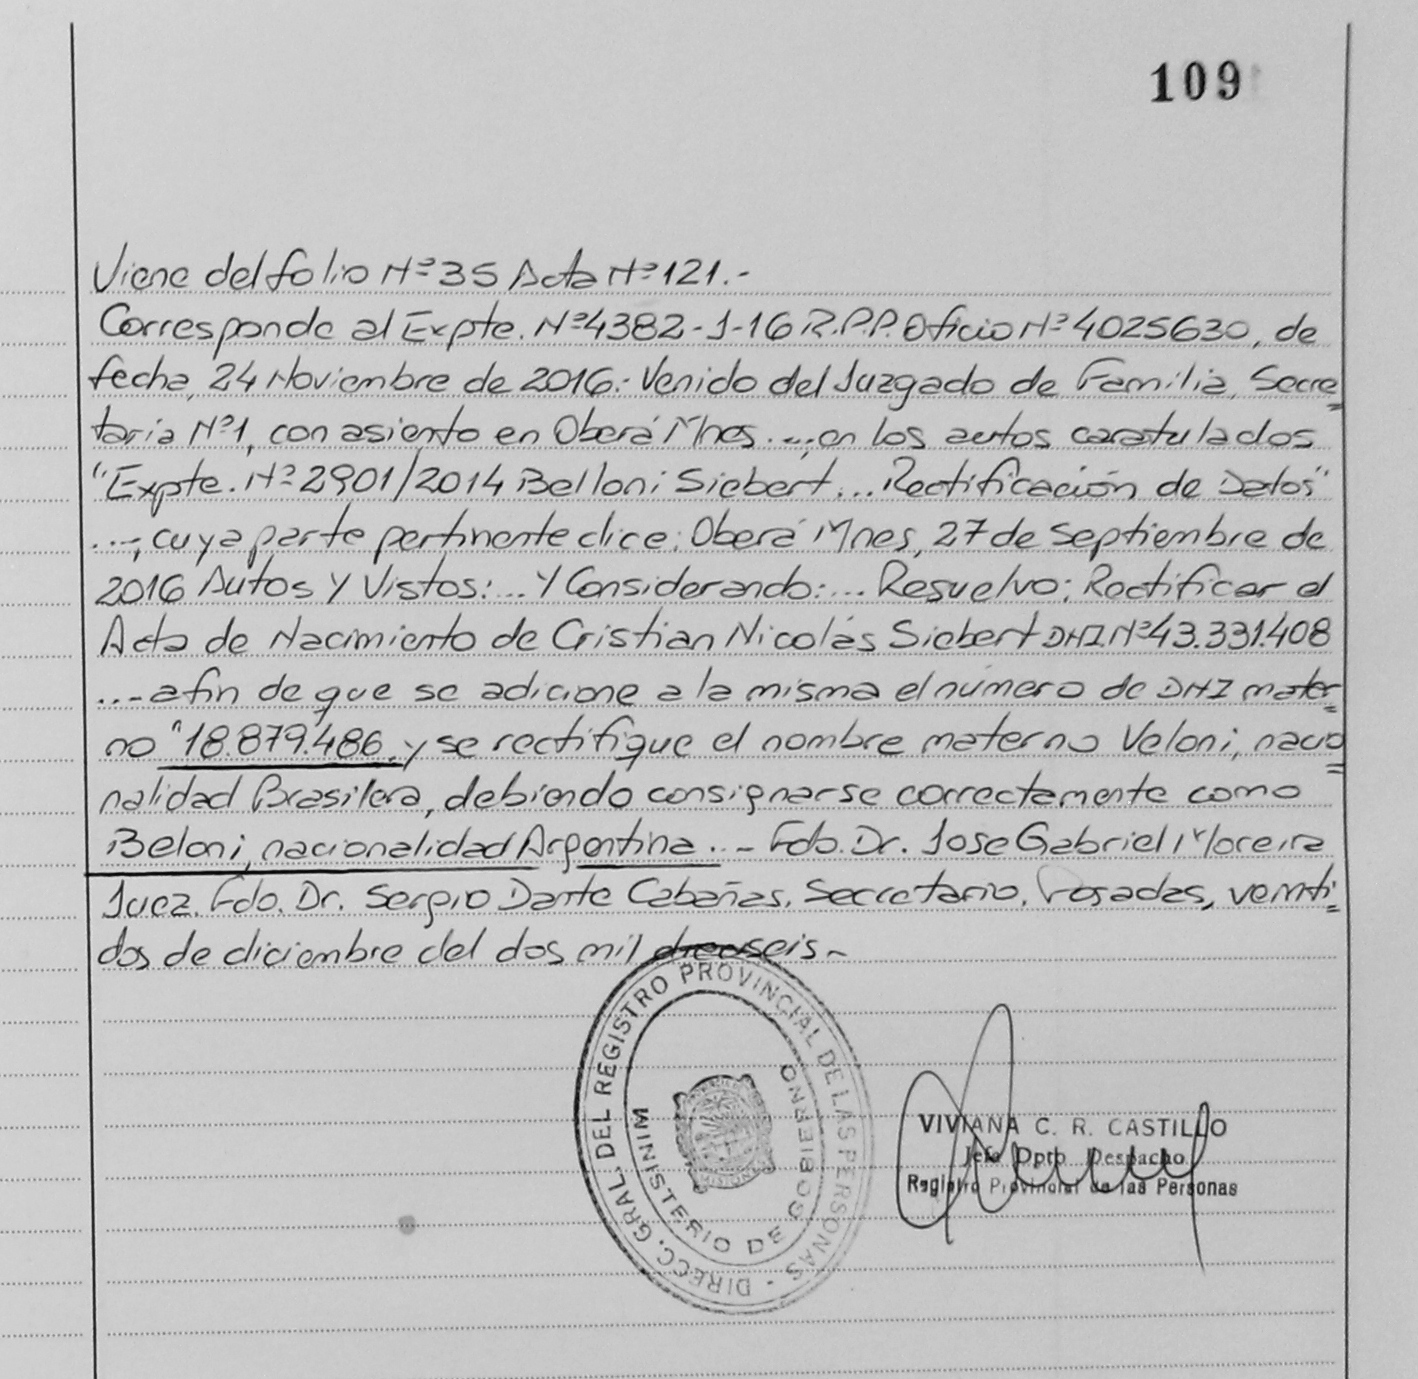 109
Viene del folio Nº 35 Acta Nº 121.-
Corresponde al Expte. Nº 4382-J-16 R.P.P. Oficio Nº 4025630, de
fecha, 24 Noviembre de 2016.- Venido del Juzgado de Familia, Secre=
taria Nº1, con asiento en Oberá Mnes...., en los autos caratulados
"Expte. Nº 2901/2014 Belloni Siebert... Rectificación de Datos"
...-, cuya parte pertinente dice: Oberá Mnes, 27 de Septiembre de
2016 Autos y Vistos:... Y Considerando:... Resuelvo: Rectificar el
Acta de Nacimiento de Cristian Nicolás Siebert DNI Nº 43.331.408
...- a fin de que se adicione a la misma el número de DNI mater=
no "18.879.486, y se rectifique el nombre materno Veloni, nacio=
nalidad Brasilera, debiendo consignarse correctamente como
Beloni, nacionalidad Argentina...- Fdo. Dr. Jose Gabriel Moreira
Juez. Fdo. Dr. Sergio Dante Cabañas. Secretario. Posadas, veinti=
dos de diciembre del dos mil dieciseis-
DIRECC. GRAL. DEL REGISTRO PROVINCIAL DE LAS PERSONAS -
MINISTERIO DE GOBIERNO
MISIONES
VIVIANA C. R. CASTILLO
Jefe Dpto Despacho
Registro Provincial de las Personas